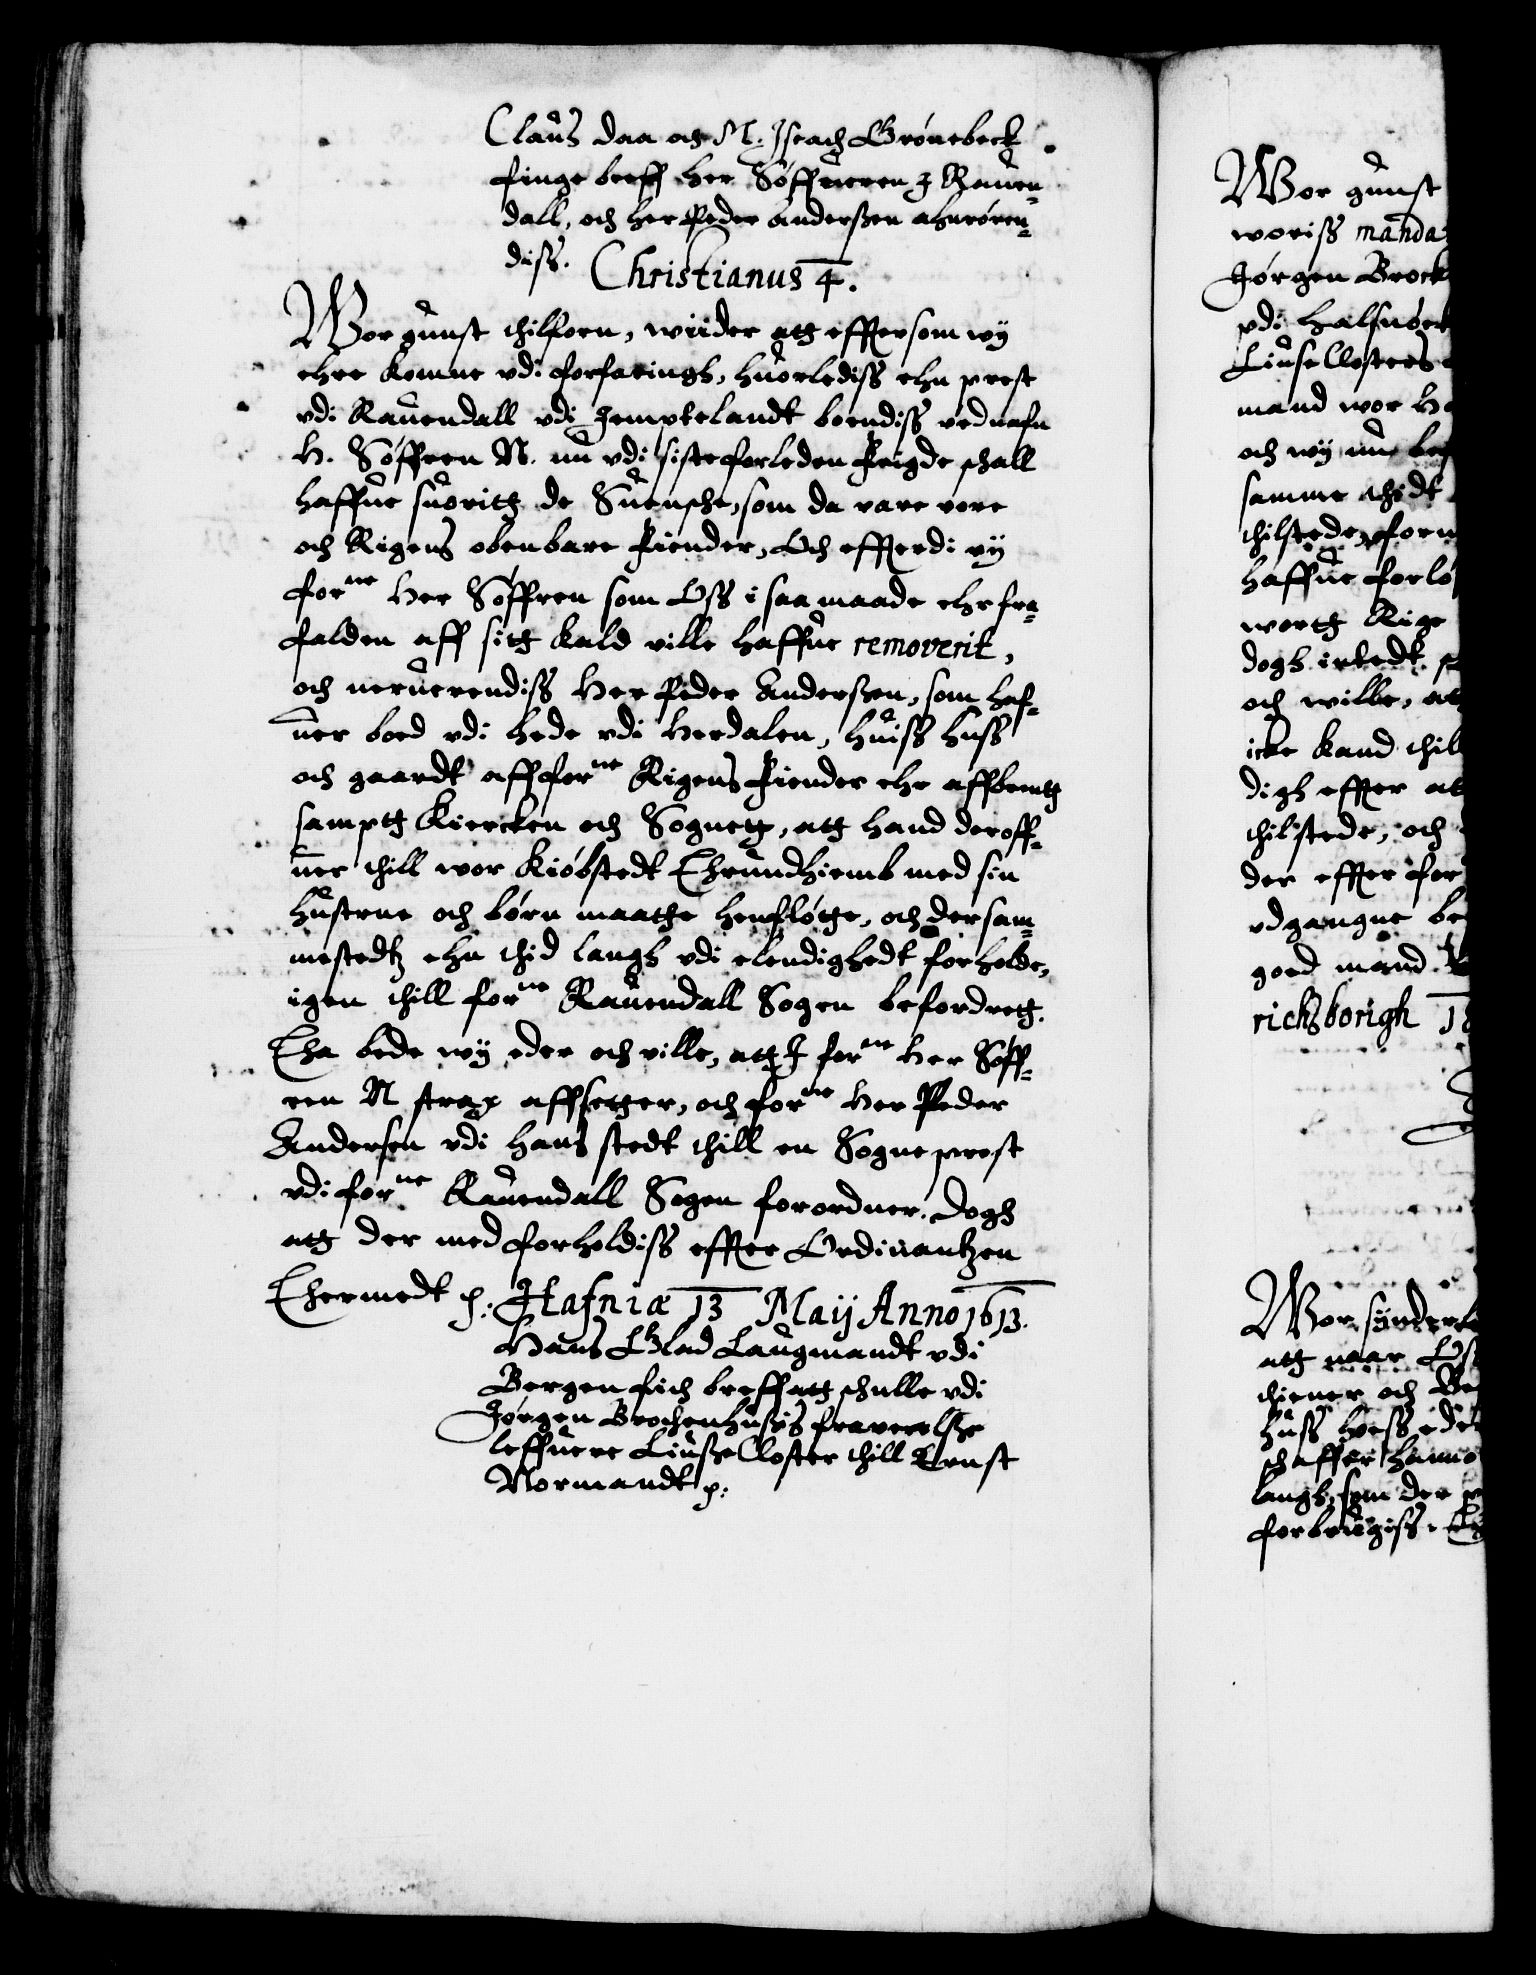 Claus daa och M. Isach Grönebeck
finge breff Her Söffueren J Rauen-
dall, och her Peder Anderssen ahnrören-
diss.
Christianus 4.
Wor gunst thilforn, wiider att effttersom wy
ehre komne vdi forfaringh, huorlediss ehn prest
vdi Rauendall vdi Jemptelandt boendiss ved nafn
H. Söffren N. nu vdi siste forleden Feigde schall
haffue suoritt de Suensche, som da vare vore
och Rigens obenbare Fiender, Och effterdi vy
for:ne Her Söffren som Oss i saa maade ehr fra-
falden aff sitt kald ville haffue removerit,
och neruerendiss Her Peder Anderssen, som haf-
uer boed vdi Hede vdi Herdalen, huiss huss
och gaardt aff for:ne Rigens Fiender ehr affbrentt
samptt Kiercken och Sognett, att hand deroff-
uer thill vor Kiöbstedt Thrundhiemb med sin
hustrue och börn maatte henflötte, och dersam-
mestedtz ehn thid langh vdi elendighedt forholde,
igen thill for:ne Rauendall Sogen befordrett.
Tha bede wy eder och ville, att J for:ne Her Söff-
ren N strax affsetter, och for:ne Her Peder
Andersen vdi hans stedt thill en Sogneprest
vdi for:ne Rauendall Sogen forordner. Dogh
att der med forholdiss effter Ordinantzen
Thermedt p: Hafniæ 13 Maij Anno 1613.
Hans Glad Laugmandt vdi
Bergen fich breff att schulle vdi
Jörgen Brochenhusis fraverelsse
leffuere Liusse Closter thill Ernst
Normandt p:
Wor gunst
woriss manda
Jörgen Brock
vdi Halsnöe
Liuse Closters
mand wor
och wy nu
samme thidt
thilstede, forn
haffue forlö
wortt Rige
dogh
och wille, at
icke kand thil
digh effter at
thilstede, och
der effter for
vdgangne be
goed mand.
richsborigh
Wor synderl
att naar Os
thiener och
huss
schaffer hanno
langh, som der
forbrugiss.